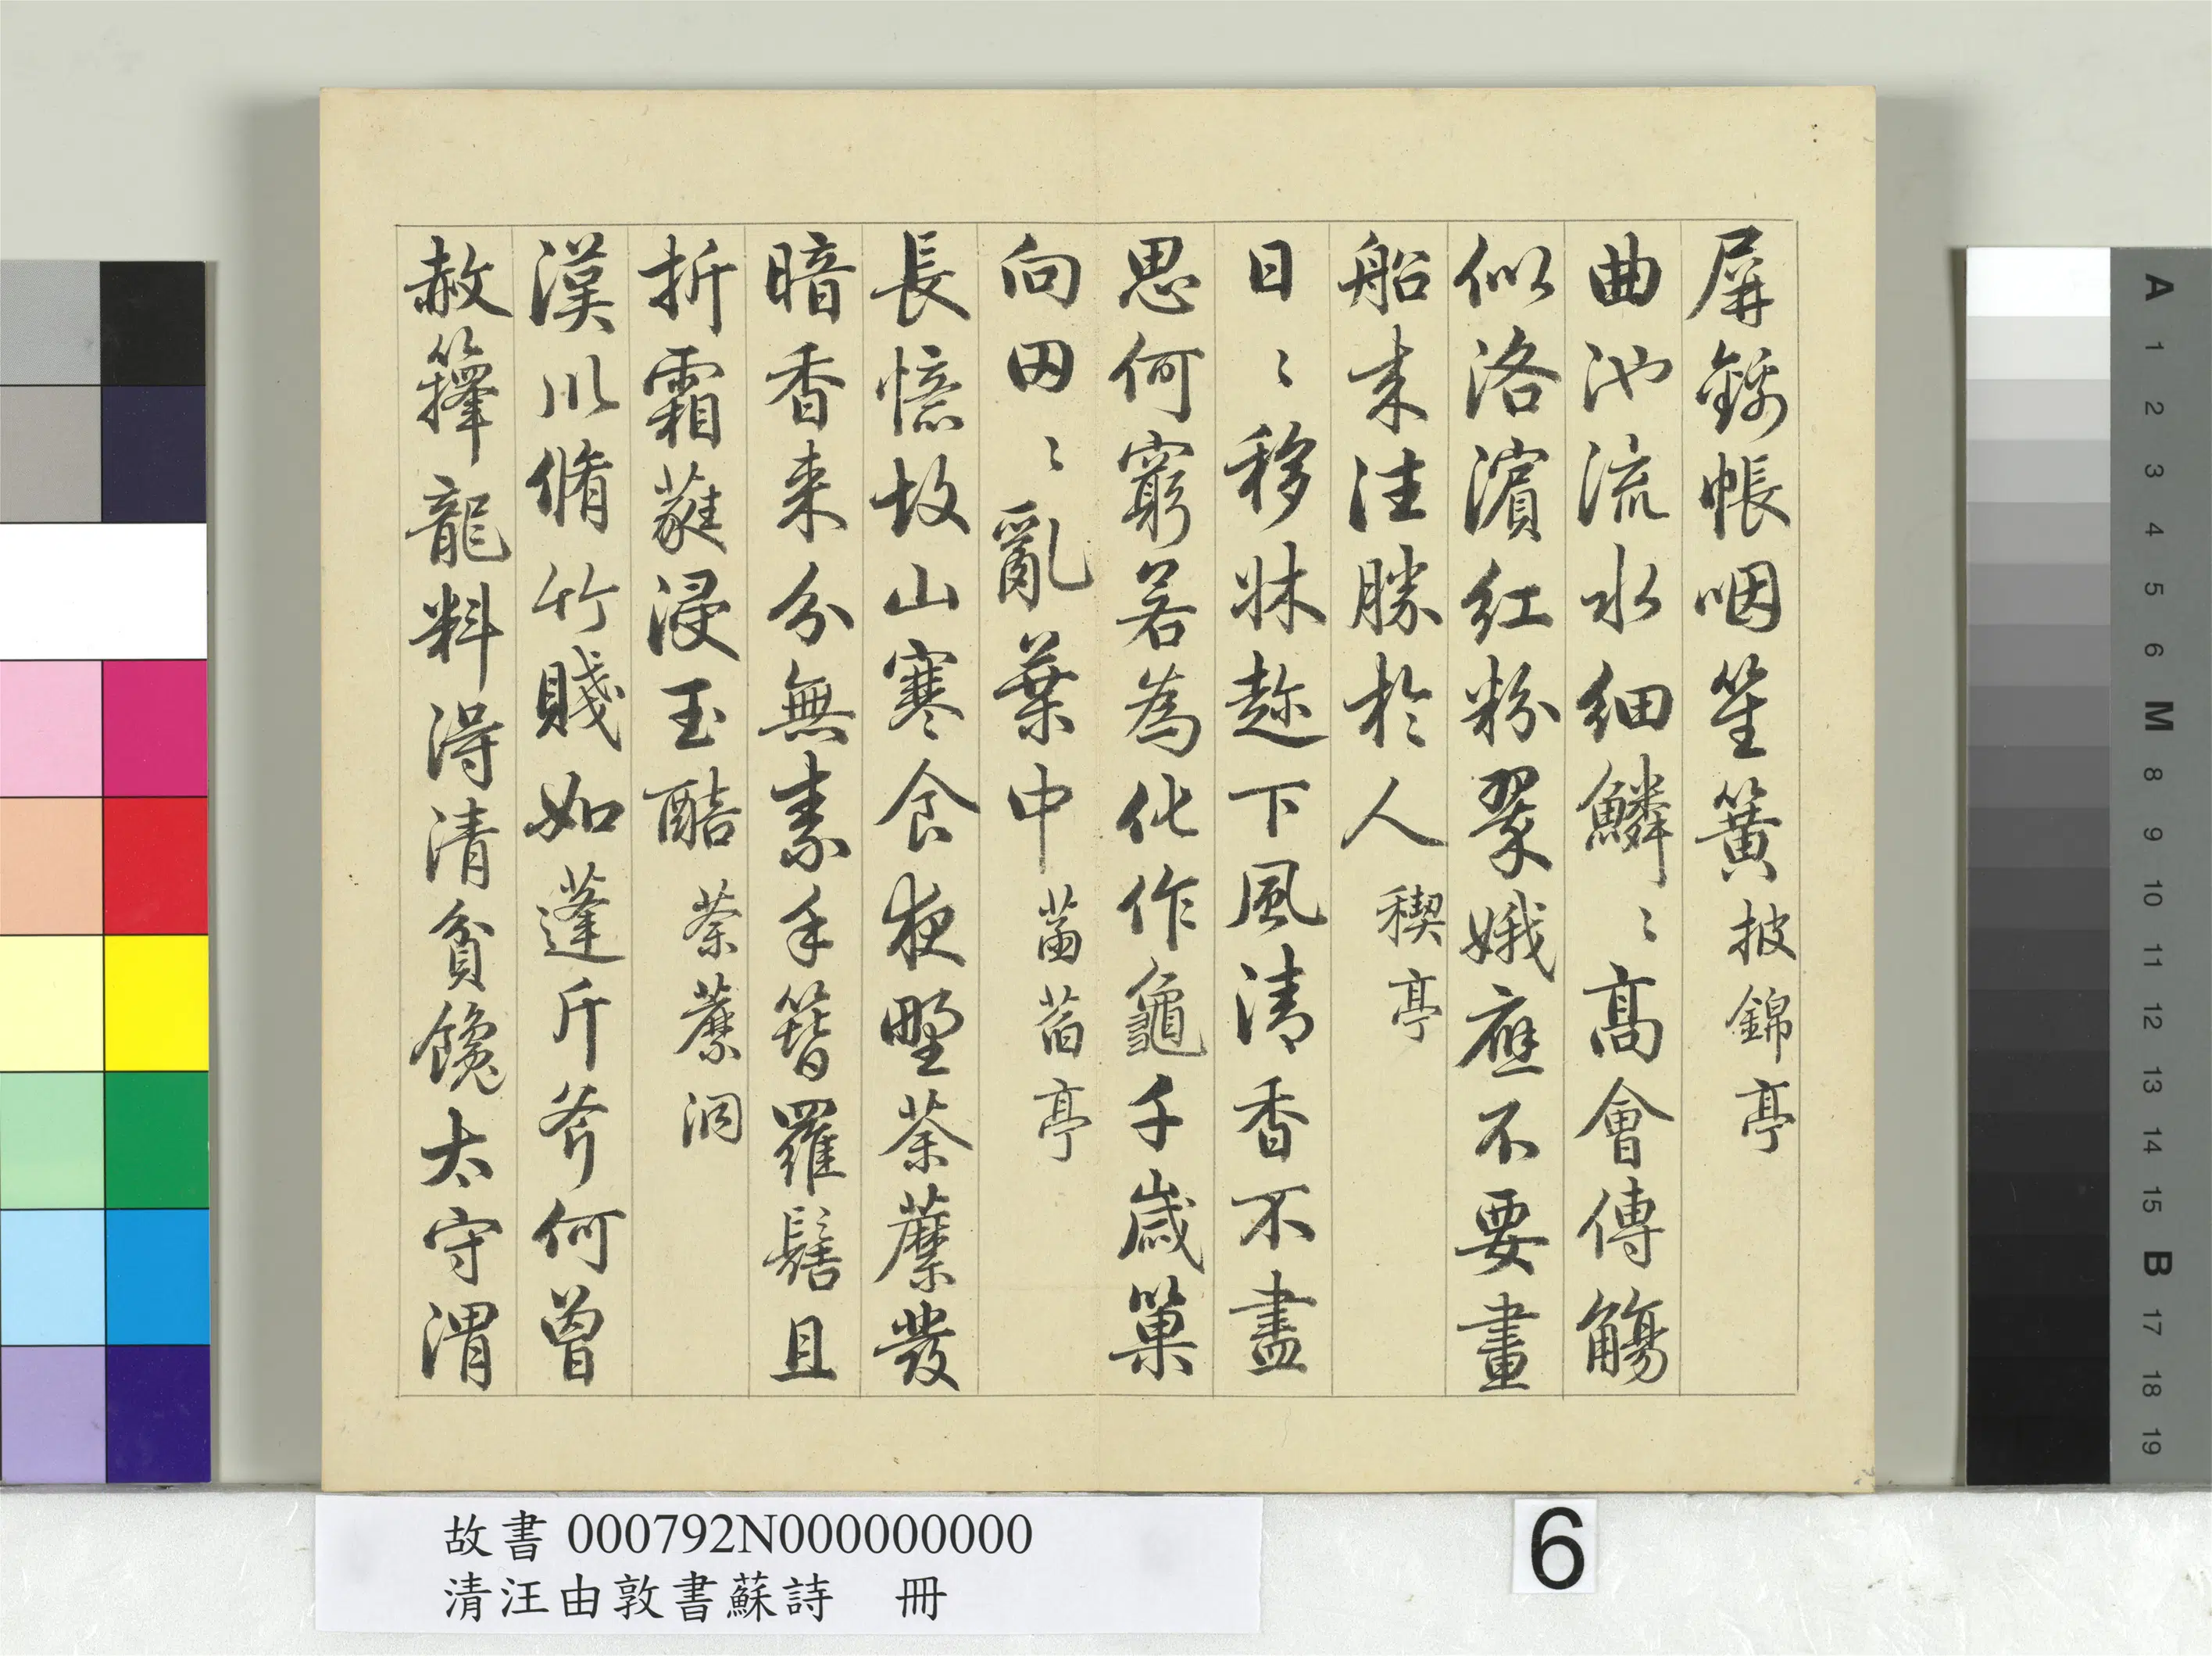 屏銹帳咽笙簧 披錦亭
曲池流水細鱗〻高會傳觴
似洛濱紅粉翠娥應不要畫
船来往勝於人 禊亭
日〻移牀趂下風清香不盡
思何窮若為化作龜千歲巢
向田〻亂葉中 菡萏亭
長憶故山寒食夜野荼蘼發
暗香来分無素手簪羅髻且
折霜蕤浸玉醅 荼蘼洞
漢川脩竹賤如蓬斤斧何曾
赦籜龍料得清貧饞太守渭
故書 000792N000000000
清汪由敦書蘇詩 冊
6
A 1 2 3 4 5 6 M 8 9 10 11 12 13 14 15 B 17 18 19